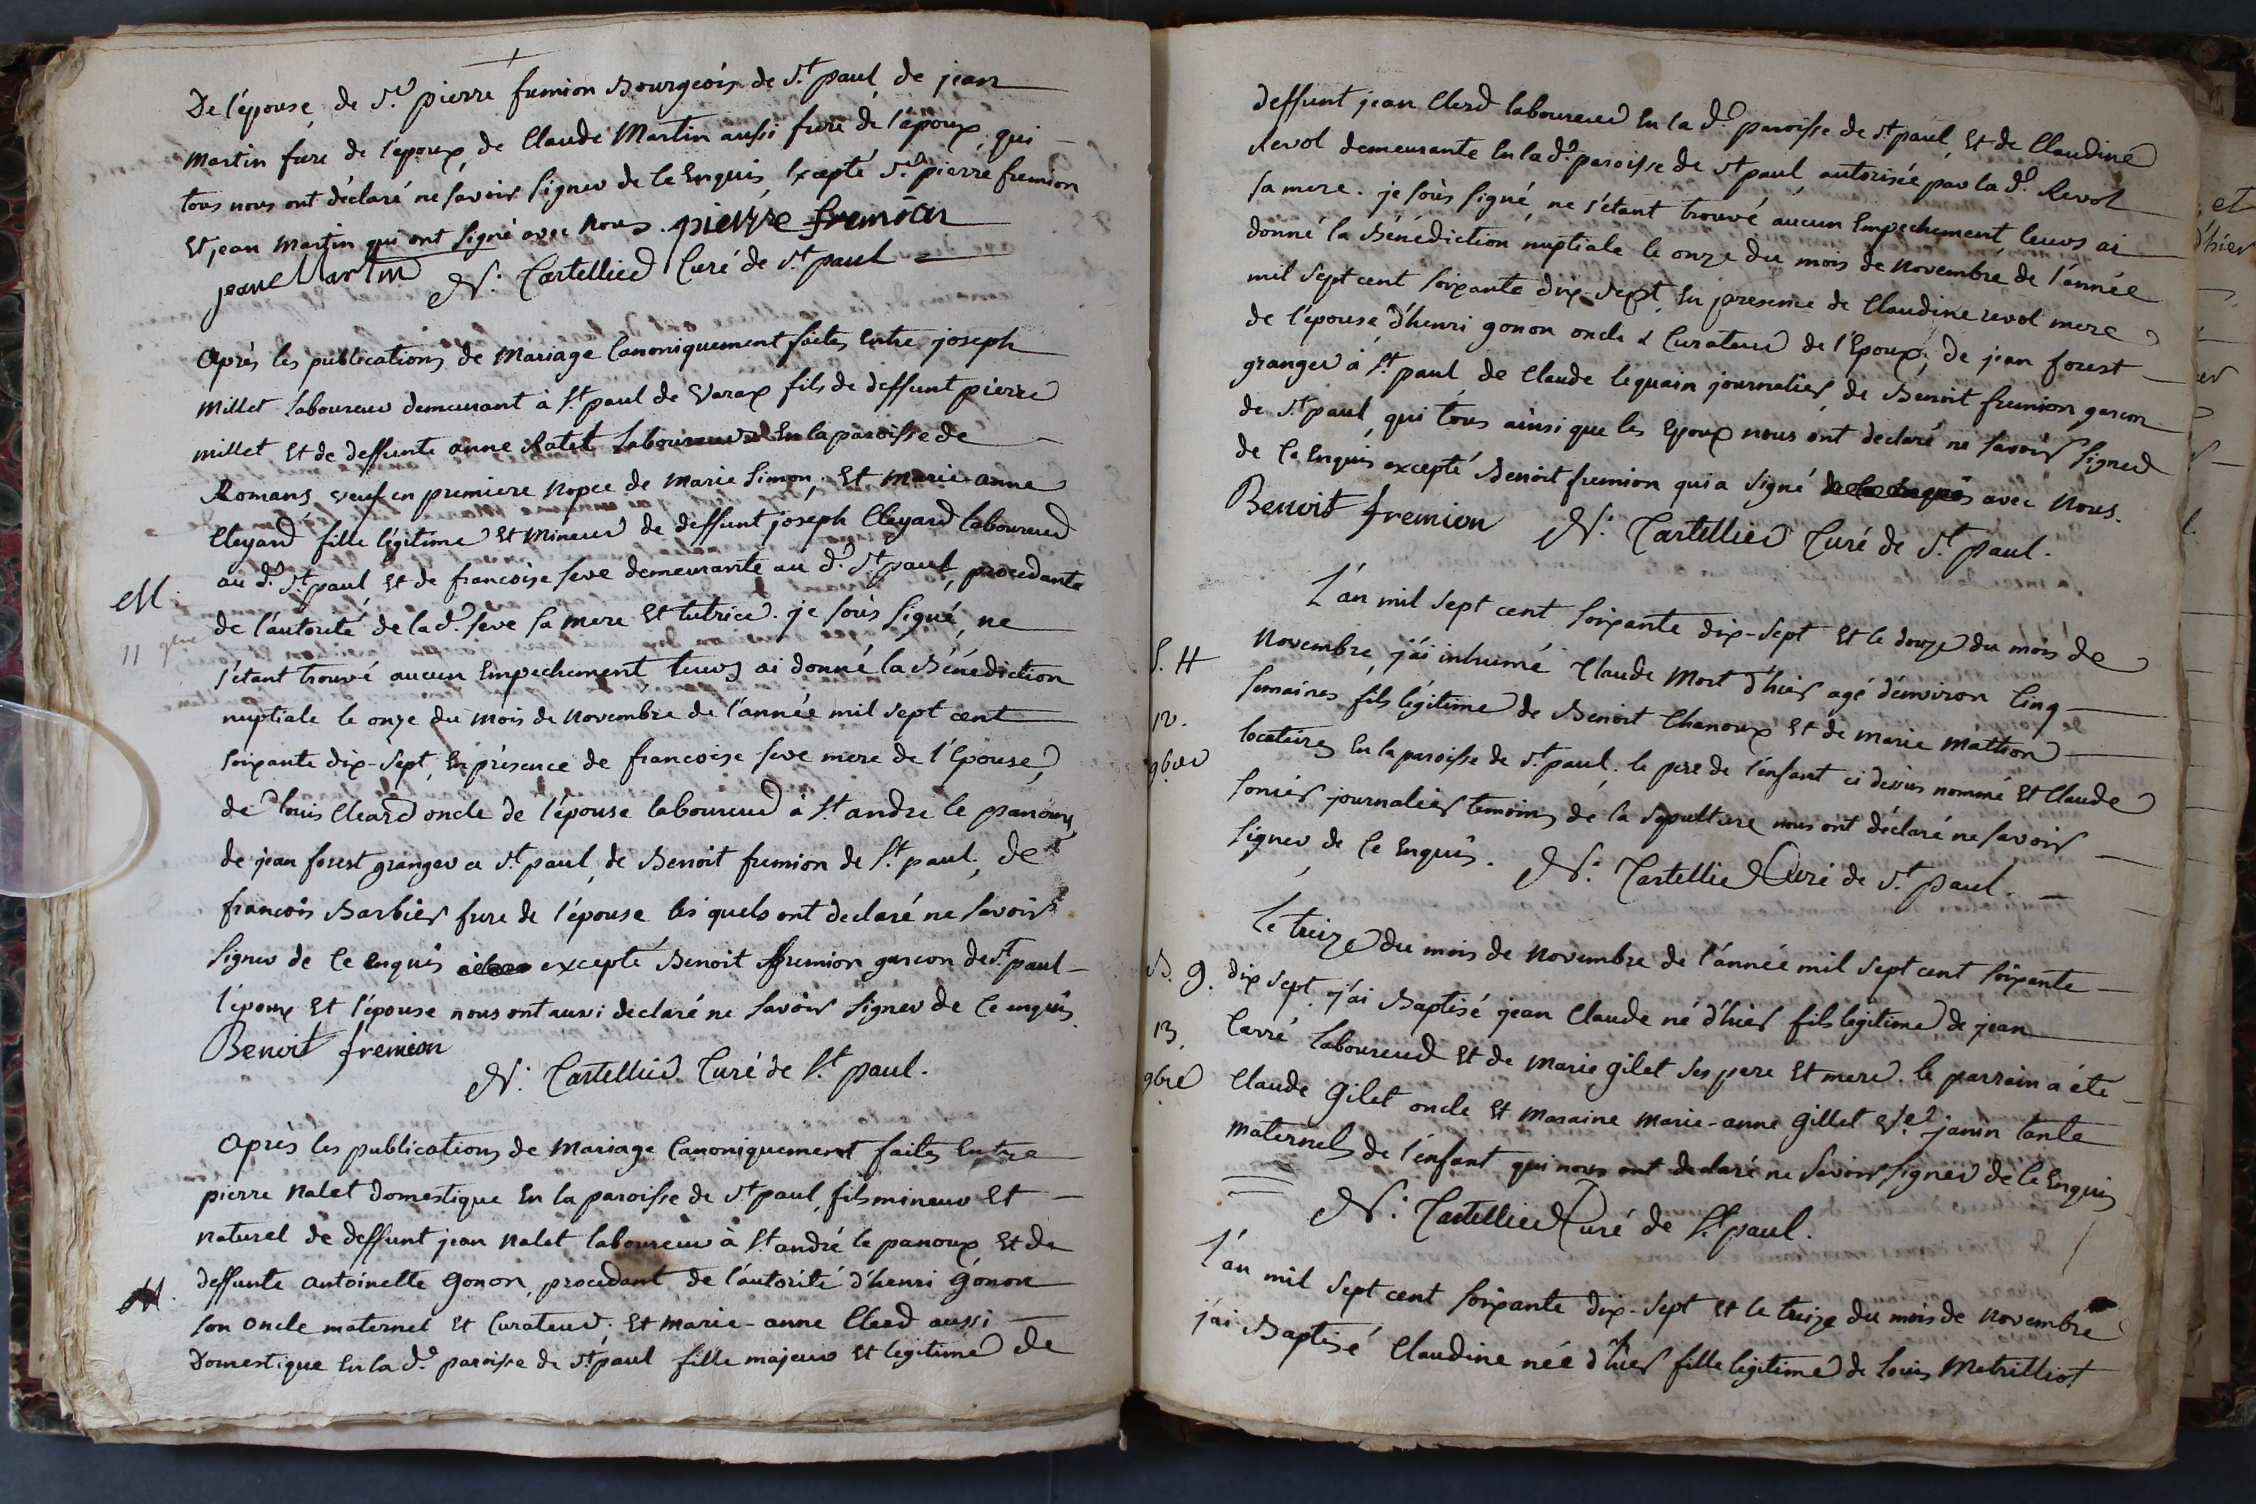 De l'épouse, de Sr. pierre fremion Bourgeois de St paul, de jean
Martin frere de l'epoux, de Claude Martin aussi frere de l'époux, qui
tous nous ont déclaré ne savoir signer de ce Enquis, Excepté Sr. pierre fremion
Et jean Martin qui ont signé avec Nous. pierre fremion
jean Martin N. Cartellier Curé de St paul
Après les publications de Mariage Canoniquement faites Entre joseph
Millet Laboureur demeurant à St paul de Varax fils de deffunt pierre
millet Et de deffunte anne Ratet Laboureurs En la paroisse de
Romans, veuf en premiere Nopce de Marie Simon, Et Marie anne
Cleyard fille légitime Et Mineur de deffunt joseph Cleyard laboureur
au d. St paul, Et de francoise seve demeurante au d. St paul, procedante
M.
de l'autorité de la d. seve sa mere Et tutrice. je soùs signé, ne
11
s'étant trouvé aucun Empechement leurs ai donné la Bénédiction
nuptiale le onze du mois de Novembre de l'année mil sept cent
soixante dix-sept, En présence de francoise seve mere de l'Epouse,
de louis Cleard oncle de l'épouse laboureur à St andre le panoux,
de jean forest granger a St paul, de Benoit fremion de St. paul, de
francois Barbier frere de l'épouse les quels ont declaré ne savoir
signer de Ce enquis excepté Benoit fremion garcon de St paul
l'époux Et l'épouse nous ont aussi declaré ne savoir signer de Ce enquis.
Benoit fremion
N. Cartellier Curé de St. paul.
Après les publications de Mariage Canoniquement faites Entre
pierre Nalet domestique En la paroisse de St paul, fils mineur Et
naturel de deffunt jean Nalet laboureur à St andré le panoux Et de
deffunte antoinette Gonon, procedant de l'autorité d'henri Gonon
M.
son oncle maternel Et Curateur; Et marie-anne Clerd aussi
Domestique En la de. paroisse de St paul fille majeur Et legitime de
deffunt jean Clerd laboureur En la de. paroisse de St paul, Et de Claudine
Revol demeurante En la de. paroisse de St paul, autorisée par la de. Revol
sa mere. je soùs signé, ne s'étant trouvé aucun Empechement, leurs ai
donné la Bénédiction nuptiale le onze du mois de novembre de l'année
mil sept cent soixante dix-sept, En presence de Claudine revol mere
de l'épouse, d'henri gonon oncle & Curateur de l'Epoux, de jean forest
granger à St paul, de Claude lequain journalier, de Benoit fremion garcon
de St. paul, qui tous ainsi que les Epoux nous ont declaré ne savoir signer
de Ce Enquis excepté Benoit fremion qui a signé avec Nous.
Benoit fremion N. Cartellier Curé de St paul.
L'an mil sept cent soixante dix-sept Et le douze du mois de
S. H
Novembre, j'ai inhumé Claude Mort d'hier agé d'environ Cinq
12.
semaines, fils légitime de Benoit Chanoux Et de marie Matton
9bre
locataires En la paroisse de St. paul. le pere de l'enfant ci dessus nommé Et Claude
sonier journalier temoins de la sepulture nous ont déclaré ne savoir
signer de Ce Enquis. N. Cartellier Curé de St paul.
Le treize du mois de Novembre de l'année mil sept cent soixante
B. G.
dix sept, j'ai Baptisé jean Claude né d'hier fils légitime de jean
13.
Carré laboureur Et de Marie Gilet ses pere Et mere. le parrain a été
9bre
Claude Gilet oncle Et Maraine Marie-anne Gillet Ve. janin tante
Maternels de l'enfant qui nous ont declaré ne savoir signer de Ce Enquis
N. Cartellier Curé de St. paul.
L'an mil sept cent soixante dix-sept Et le treize du mois de Novembre
j'ai Baptisé Claudine née d'hier fille légitime de louis Metrilliot